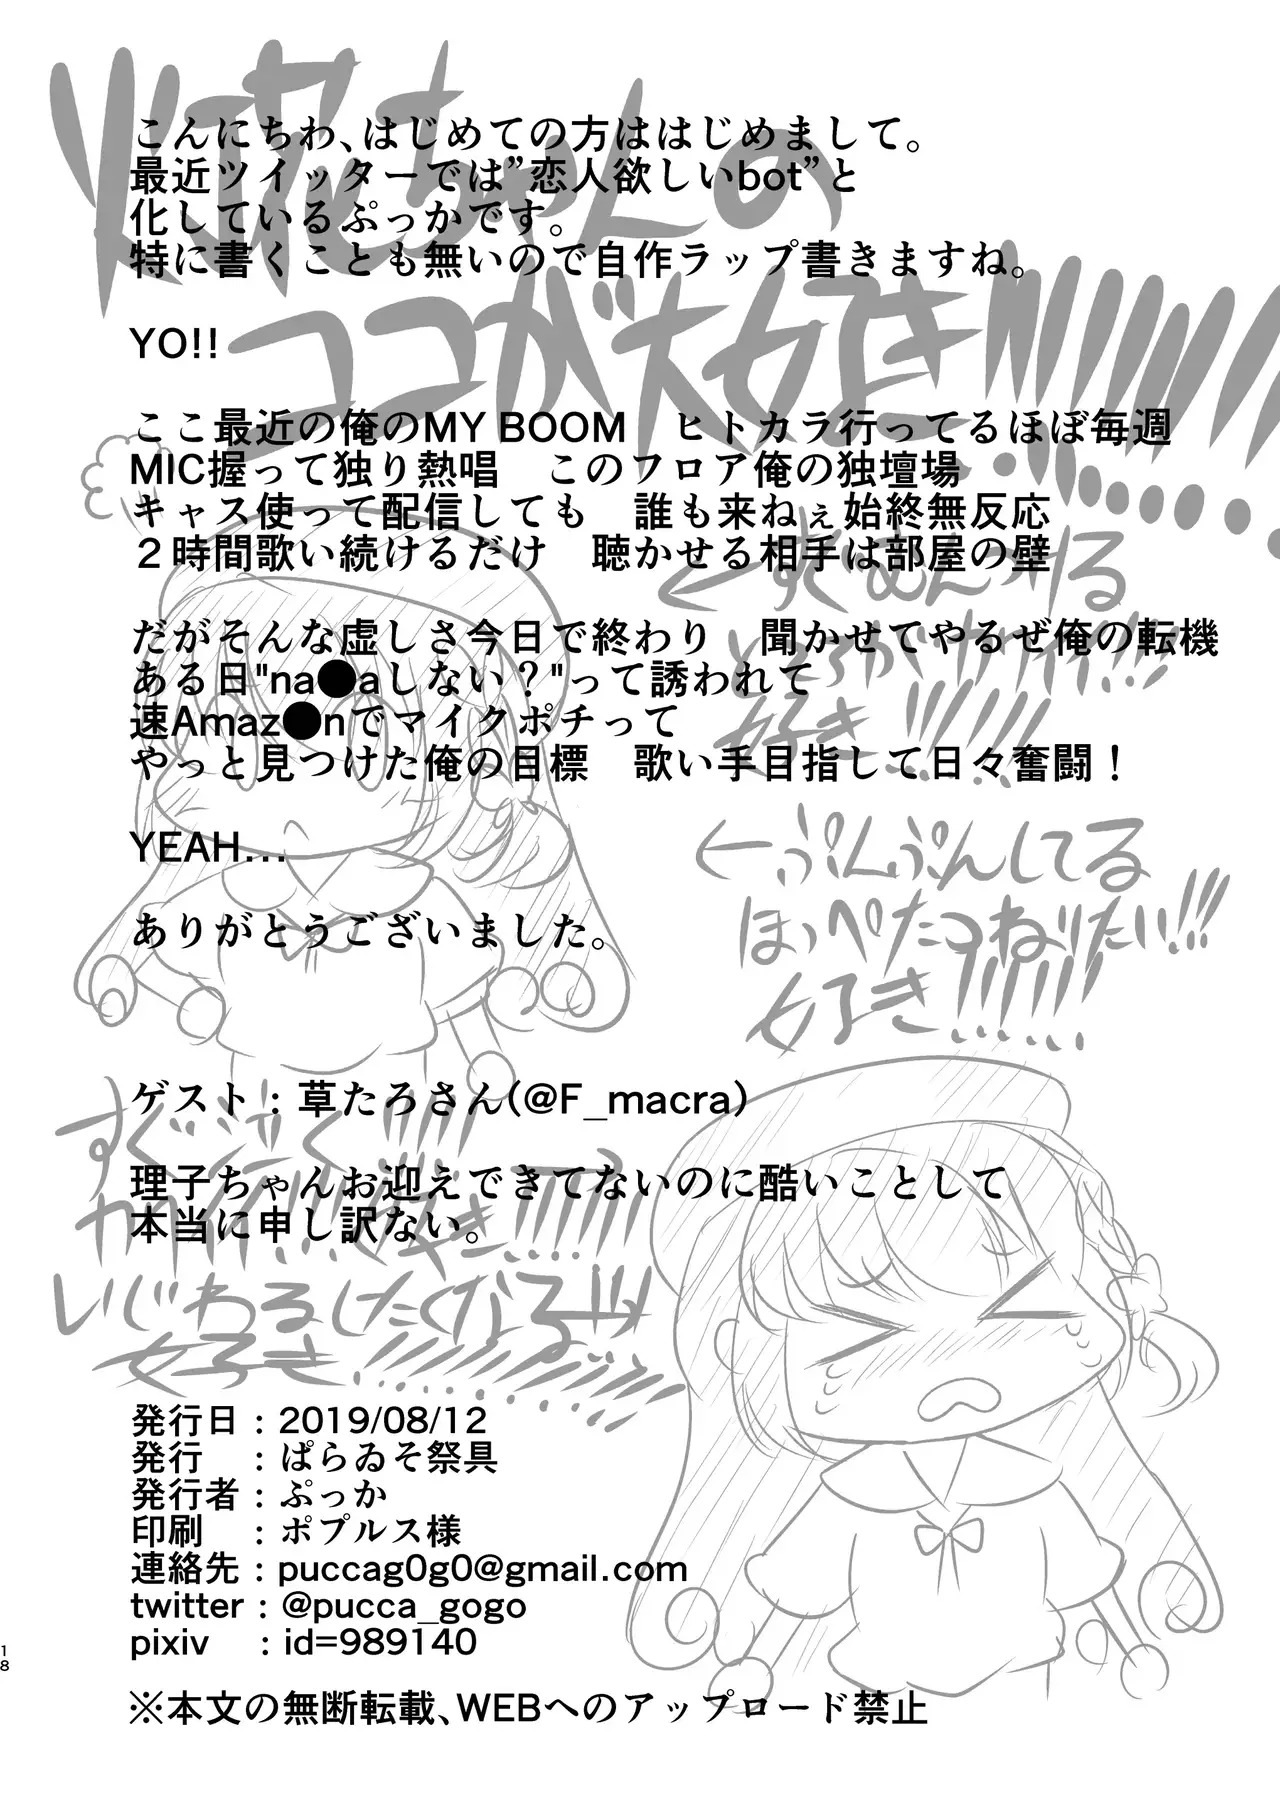 火花ちゃんの
ココが大好き!!!!!!!!!!
こんにちわ、はじめての方ははじめまして。
最近ツイッターでは”恋人欲しいbot”と
化しているぷっかです。
特に書くことも無いので自作ラップ書きますね。
YO!!
ここ最近の俺のMY BOOM　ヒトカラ行ってるほぼ毎週
MIC握って独り熱唱　このフロア俺の独壇場
キャス使って配信しても　誰も来ねぇ始終無反応
２時間歌い続けるだけ　聴かせる相手は部屋の壁
だがそんな虚しさ今日で終わり　聞かせてやるぜ俺の転機
ある日"na●aしない？"って誘われて
速Amaz●nでマイクポチって
やっと見つけた俺の目標　歌い手目指して日々奮闘！
YEAH...
ありがとうございました。
←すぐむくれる
ところがカワイイ!!!
好き!!!!!!
←ぷんぷんしてる
ほっぺたつねりたい!!!
好き!!!!!!
ゲスト：草たろさん(@F_macra)
理子ちゃんお迎えできてないのに酷いことして
本当に申し訳ない。
いじわるしたくなる
好き
発行日：2019/08/12
発行　：ぱらゐそ祭具
発行者：ぷっか
印刷　：ポプルス様
連絡先：puccag0g0@gmail.com
twitter：@pucca_gogo
pixiv　：id=989140
※本文の無断転載、WEBへのアップロード禁止
18